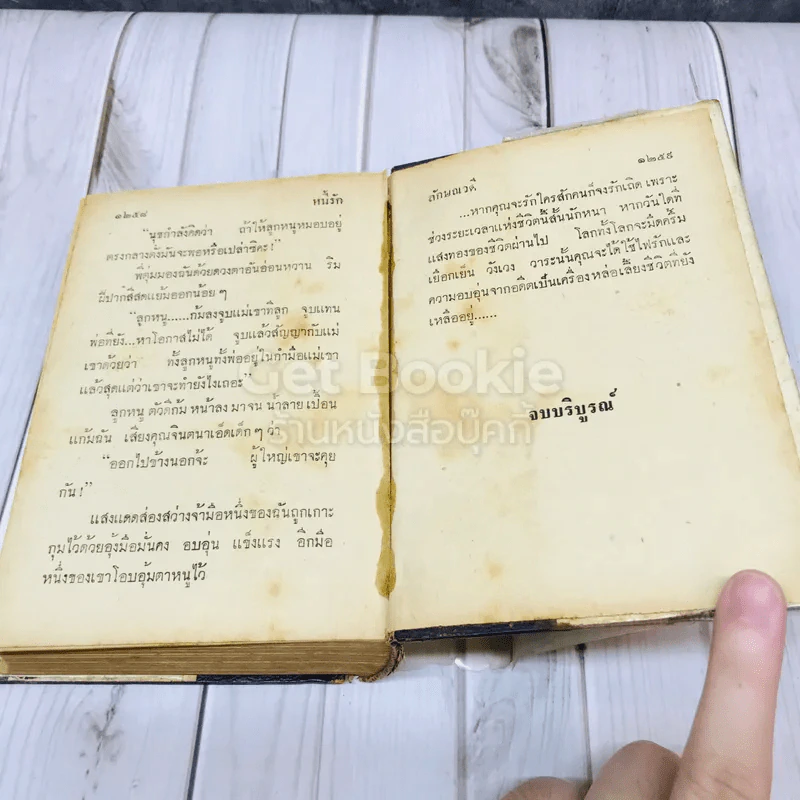 ๑๒๕๘ หนี้รัก
"นุชกำลังคิดว่า ถ้าให้ลูกหนูหมอบอยู่
ตรงกลางตั้งมันจะพอหรือเปล่าซิคะ!"
พี่ตุ่มมองฉันด้วยดวงตาอันอ่อนหวาน ริม
ฝีปากสีสดแย้มออกน้อย ๆ
"ลูกหนู......ก้มลงจูบแม่เขาทีลูก จูบแทน
พ่อที่ยัง...หาโอกาสไม่ได้ จูบแล้วสัญญากับแม่
เขาด้วยว่า ทั้งลูกหนูทั้งพ่ออยู่ในกำมือแม่เขา
แล้วสุดแต่ว่าเขาจะทำยังไงเถอะ"
ลูกหนู ตัวดีก้ม หน้าลง มาจน น้ำลาย เปื้อน
แก้มฉัน เสียงคุณจินตนาเอ็ดเด็ก ๆ ว่า
"ออกไปข้างนอกจ้ะ ผู้ใหญ่เขาจะคุย
กัน!"
แสงแดดส่องสว่างจ้ามือหนึ่งของฉันถูกเกาะ
กุมไว้ด้วยอุ้งมือมั่นคง อบอุ่น แข็งแรง อีกมือ
หนึ่งของเขาโอบอุ้มตาหนูไว้
ลักษณวดี ๑๒๕๙
...หากคุณจะรักใครสักคนก็จงรักเถิด เพราะ
ช่วงระยะเวลาแห่งชีวิตนี้สั้นนักหนา หากวันใดที่
แสงทองของชีวิตผ่านไป โลกทั้งโลกจะมืดครึ้ม
เยือกเย็น วังเวง วาระนั้นคุณจะได้ใช้ไฟรักและ
ความอบอุ่นจากอดีตเป็นเครื่องหล่อเลี้ยงชีวิตที่ยัง
เหลืออยู่......
จบบริบูรณ์
Get Bookie
ร้านหนังสือบุ๊คกี้